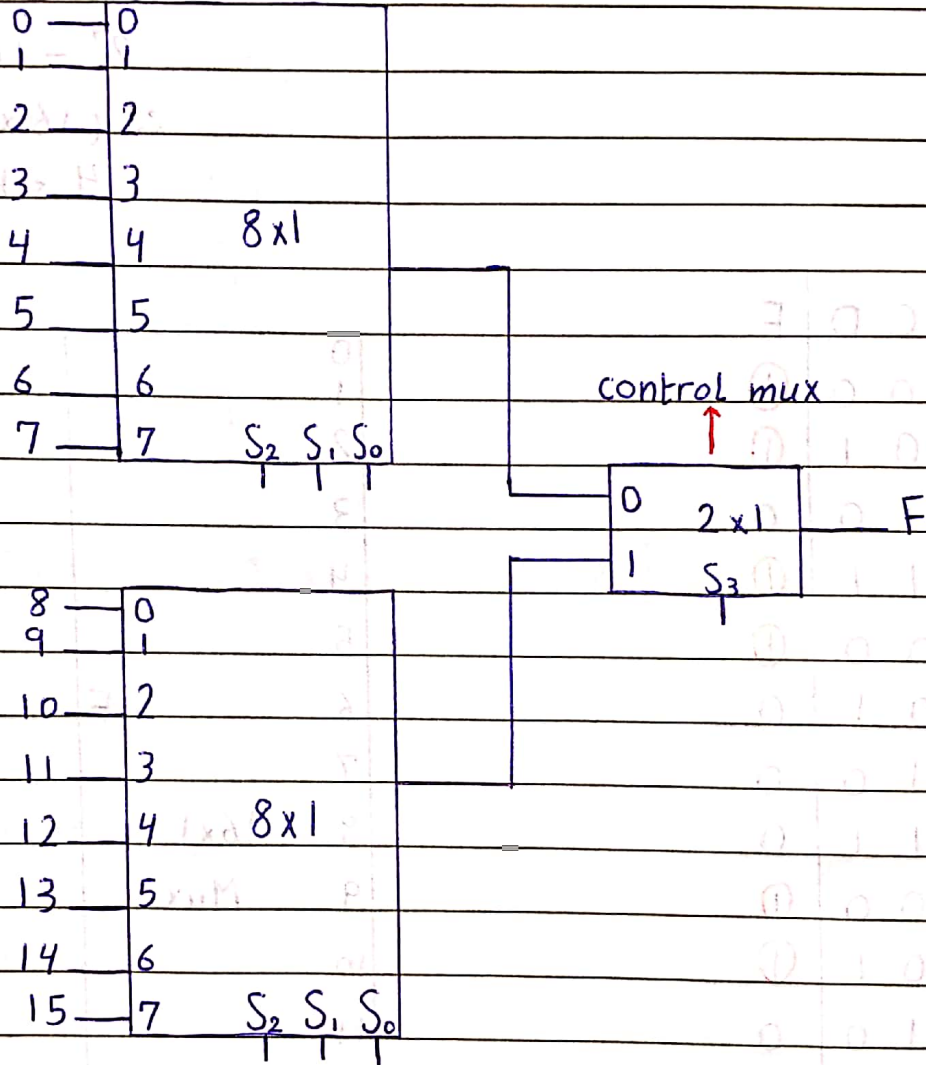 0 0
1 1
2 2
3 3
4 4
8x1
5 5
6 6
7 7 S₂ S₁ S₀
control mux
0
2x1
F
1
S₃
8 0
9 1
10 2
11 3
12 4
8x1
13 5
14 6
15 7 S₂ S₁ S₀